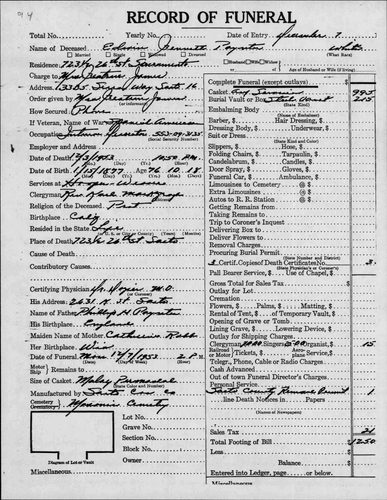 94
RECORD OF FUNERAL
Total No. Yearly No. Date of Entry December 7
Name of Deceased Edwin Bennett Poynter White
Married Single Widowed Divorced (What Race)
Residence 723½ 26 St Sacramento Husband Wife Widow
or Age of Husband or Wife (if living)
Charge to Mrs Jones
Address Way Sacto 16
Order given by Mrs Jones
How Secured
If Veteran, Name War Spanish American
Occupation 553-09-3135
(Social Security Number)
Employer and Address
Date of Death 12/3/1953 10:50 P.M.
Date of Birth 1/15/1877 Age 76 10 18
Services at
Clergyman Rev
Religion of the Deceased Prot
Birthplace Calif
Resided in the State Life
Place of Death 723½ 26 St Sacto
Cause of Death
Contributory Causes
Certifying Physician M.D.
His Address 2631 K St Sacto
Name of Father Phillip H Poynter
His Birthplace England
Maiden Name of Mother Catherine Robb
Her Birthplace Wis
Date of Funeral Mon 12/7/1953 2 P.M.
Motor Ship Remains to
Size of Casket
(State Color and Number)
Manufactured by Sacto Co
Cemetery Crematory Masonic Cemetery
Lot No.
Grave No.
Section No.
Block No.
Owner
Diagram of Lot or Vault
Miscellaneous
Complete Funeral (except outlays) $
Casket 995
Burial Vault or Box Steel Vault 215
(State Kind)
Embalming Body
(Name of Embalmer)
Barber, $ Hair Dressing, $
Dressing Body, $ Underwear, $
Suit or Dress
(State Kind and Color)
Slippers, $ Hose, $
Folding Chairs, $ Tarpaulin, $
Candelabrum, $ Candles, $
Door Spray, $ Gloves, $
Funeral Car, $ Ambulance, $
Limousines to Cemetery @ $
Extra Limousines @ $
Autos to R. R. Station @ $
Getting Remains from
Taking Remains to
Trip to Coroner's Inquest
Delivering Box to
Deliver Flowers to
Removal Charges
Procuring Burial Permit
(State Number and District)
3 Certif. Copies of Death Certificate No. 3
(State Physician's or Coroner's)
Pall Bearer Service, $ Use of Chapel, $
Gross Total for Sales Tax $
Outlay for Lot
Cremation
Flowers, $ Palms, $ Matting, $
Rental of Tent, $ of Temporary Vault, $
Opening of Grave or Tomb
Lining Grave, $ Lowering Device, $
Outlay for Shipping Charges
Clergyman Singers Organist, $ 15
Railroad or Motor Tickets, $ plane Service, $
Telegr., Phone, Cable or Radio Charges
Cash Advanced
Out of town Funeral Director's Charges
Personal Service
Sacto County Removal Permit 1
line Death Notices in Papers
(Name of Newspapers)
Sales Tax 21
Total Footing of Bill $ 1250
Less
Balance $
Entered into Ledger, page or below.
Miscellaneous